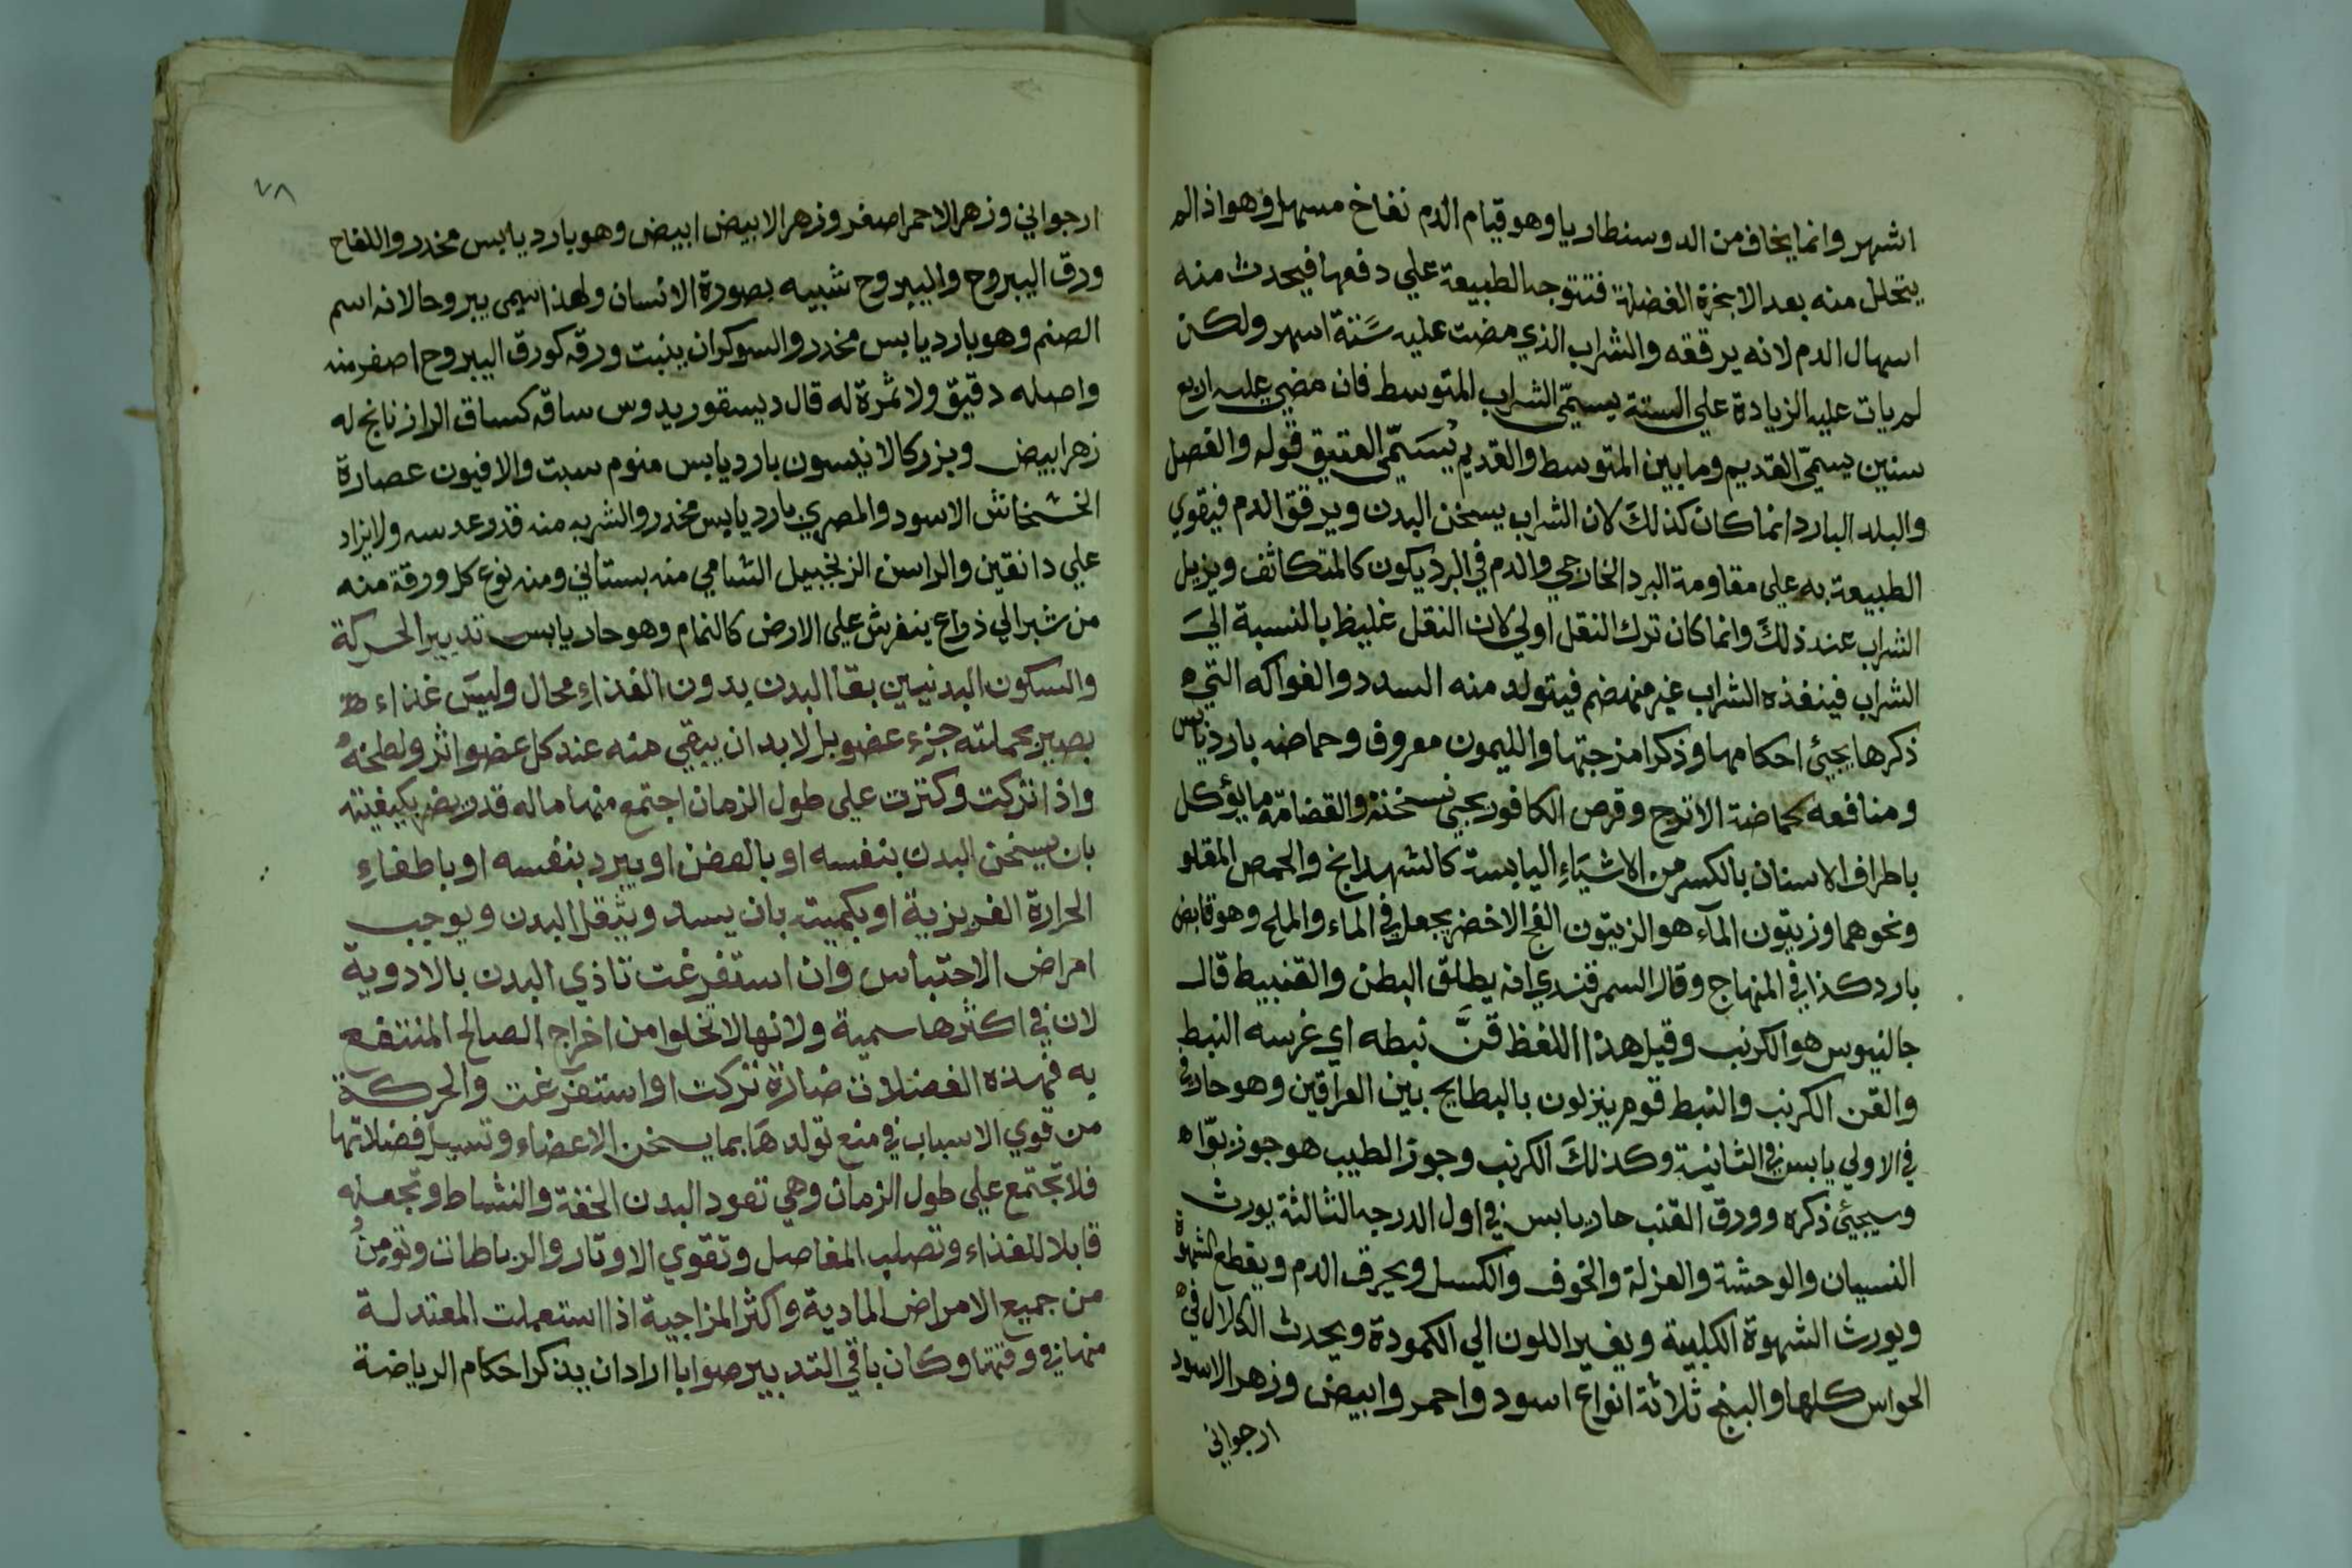 اشهر وانما يخاف من الدوسنطاريا وهو قيام الدم نفاخ مسهل وهو اذا لم
يتحلل منه بعد الابخرة الفضلة فتتوجه الطبيعة علي دفعها فيحدث منه
اسهال الدم لانه يرققه والشراب الذي مضت عليه سَتة اسهر ولكن
لم يات عليه الزيادة علي الستة يسمّي الشراب المتوسط فان مضي عليه اربع
سنين يسمّي القديم وما بين المتوسط والقديم يُسَمّي العتيق قوله والفصل
والبلد البارد انما كان كذلكَ لان الشراب يسخن البدن ويرقق الدم فيقوي
الطبيعة به علي مقاومة البرد الخارجي والدم في البرد يكون كالمتكاثف ويزيل
الشراب عند ذلكَ وانما كان ترك النقل اولي لان النقل غليظ بالنسبة الىَ
الشراب فينفذه الشراب غير منهضم فيتولد منه السدد والفواكه التي
ذكرها يجيئ احكامها وذكر امزجتها والليمون معروف وحماضه بارد يابس
ومنافعه كحماضة الاترج وقرص الكافور يجي نسخته والقضامة ما يؤكل
باطراف الاسنان بالكسر من الاشيَاءِ اليابسة كالشهدانج والحمص المقلو
ونحوهما وزيتون المآء هو الزيتون الفج الاخضر يجعل في الماء والملح وهو قابض
بارد كذا في المنهاج وقال السمرقندي انه يطلق البطن والقنبيط قال
جالنيوس هو الكرنب وقيل هذا اللفظ قنَّ نبطه اي غرسه النبط
والقن الكرنب والنبط قوم ينزلون بالبطايح بين العراقين وهو حار في
في الاولي يابس في الثانية وكذلكَ الكرنب وجوز الطيب هو جوز بوّا
وسيجيئ ذكره وورق القنب حار يابس في اول الدرجه الثالثة يورث
النسيان والوحشة والعزلة والخوف والكسل ويحرق الدم ويقطع الشهوة
ويورث الشهوة الكلبية ويغير اللون الي الكمودة ويحدث الكلال في
الحواس كلها والبنج ثلاثة انواع اسود واحمر وابيض وزهر الاسود
ارجواني
٧٨
ارجواني وزهر الاحمر اصفر وزهر الابيض ابيض وهو بارد يابس مخدر واللفاح
ورق اليبروح واليبروح شبيه بصورة الانسان ولهذا سمي يبروحا لانه اسم
الصنم وهو بارد يابس مخدر والسوكران ينبت ورقه كورق اليبروح اصفر منه
واصله دقيق ولا ثمرة له قال ديسقوريدوس ساقه كساق الرازنانج له
زهر ابيض وبزر كالانيسون بارد يابس منوم سبت والافيون عصارة
الخشخاش الاسود والمصري بارد يابس مخدر والشربه منه قدر عدسه ولا يزاد
علي دانقين والراسن الزنجبيل الشامي منه بستاني ومنه نوع كل ورقة منه
من شبر الي ذراع ينفرش علي الارض كالنمام وهو حار يابس تدبير الحركة
والسكون البدنيين بقآ البدن بدون الغذاءِ محال وليسَ غذاء
بصير بجملته جزء عضو بل لا بد ان يبقي منه عند كل عضو اثر ولطخهُ
واذا تركت وكثرت علي طول الزمان اجتمع منها ما له قدر يضر بكيفيته
بان يسخن البدن بنفسه او بالعفن او يبرد بنفسه او باطفاءِ
الحرارة الغريزية او بكميته بان يسد ويثقل البدن ويوجب
امراض الاحتباس وان استفرغت تاذي البدن بالادوية
لان في اكثرها سمية ولانها لا تخلوا من اخراج الصالح المنتفع
به فهذه الفضلات ضارة تركت او استفرغت والحركة
من قوي الاسباب في منع تولدهَا بما يسخن الاعضاء وتسيل فضلاتها
فلا تجتمع علي طول الزمان وهي تعود البدن الخفة والنشاط وتجعله
قابلا للغذاء وتصلب المفاصل وتقوي الاوتار والرباطات وتومنُ
من جميع الامراض المادية واكثر المزاجية اذا استعملت المعتدلة
منها في وقتها وكان باقي التدبير صوابا اراد ان يذكر احكام الرياضة